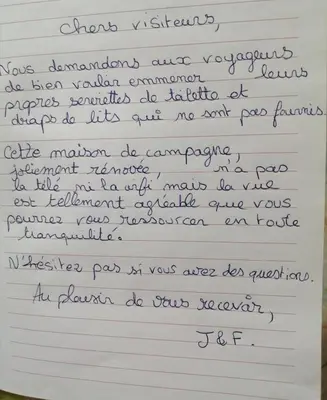 Chers visiteurs,
Nous demandons aux voyageurs
de bien vouloir emmener leurs
propres serviettes de toilette et
draps de lits qui ne sont pas fournis.
Cette maison de campagne,
joliement rénovée, n'a pas
la télé ni la wifi mais la vue
est tellement agréable que vous
pourrez vous ressourcer en toute
tranquilité.
N'hésitez pas si vous avez des questions.
Au plaisir de vous recevoir,
J&F.